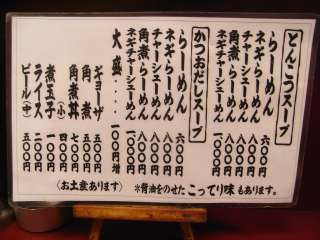 とんこつスープ
らーめん 六〇〇円
ネギらーめん 八〇〇円
チャーシューめん 八〇〇円
角煮らーめん 八〇〇円
ネギチャーシューめん 一〇〇〇円
かつおだしスープ
らーめん 六〇〇円
ネギらーめん 八〇〇円
チャーシューめん 八〇〇円
角煮らーめん 八〇〇円
ネギチャーシューめん 一〇〇〇円
大盛 一〇〇円増
ギョーザ 五〇〇円
角煮 五〇〇円
角煮丼 七〇〇円
(小) 四〇〇円
煮玉子 一〇〇円
ライス 二〇〇円
ビール(中) 五〇〇円
(お土産あります)
※背油をのせたこってり味もあります。